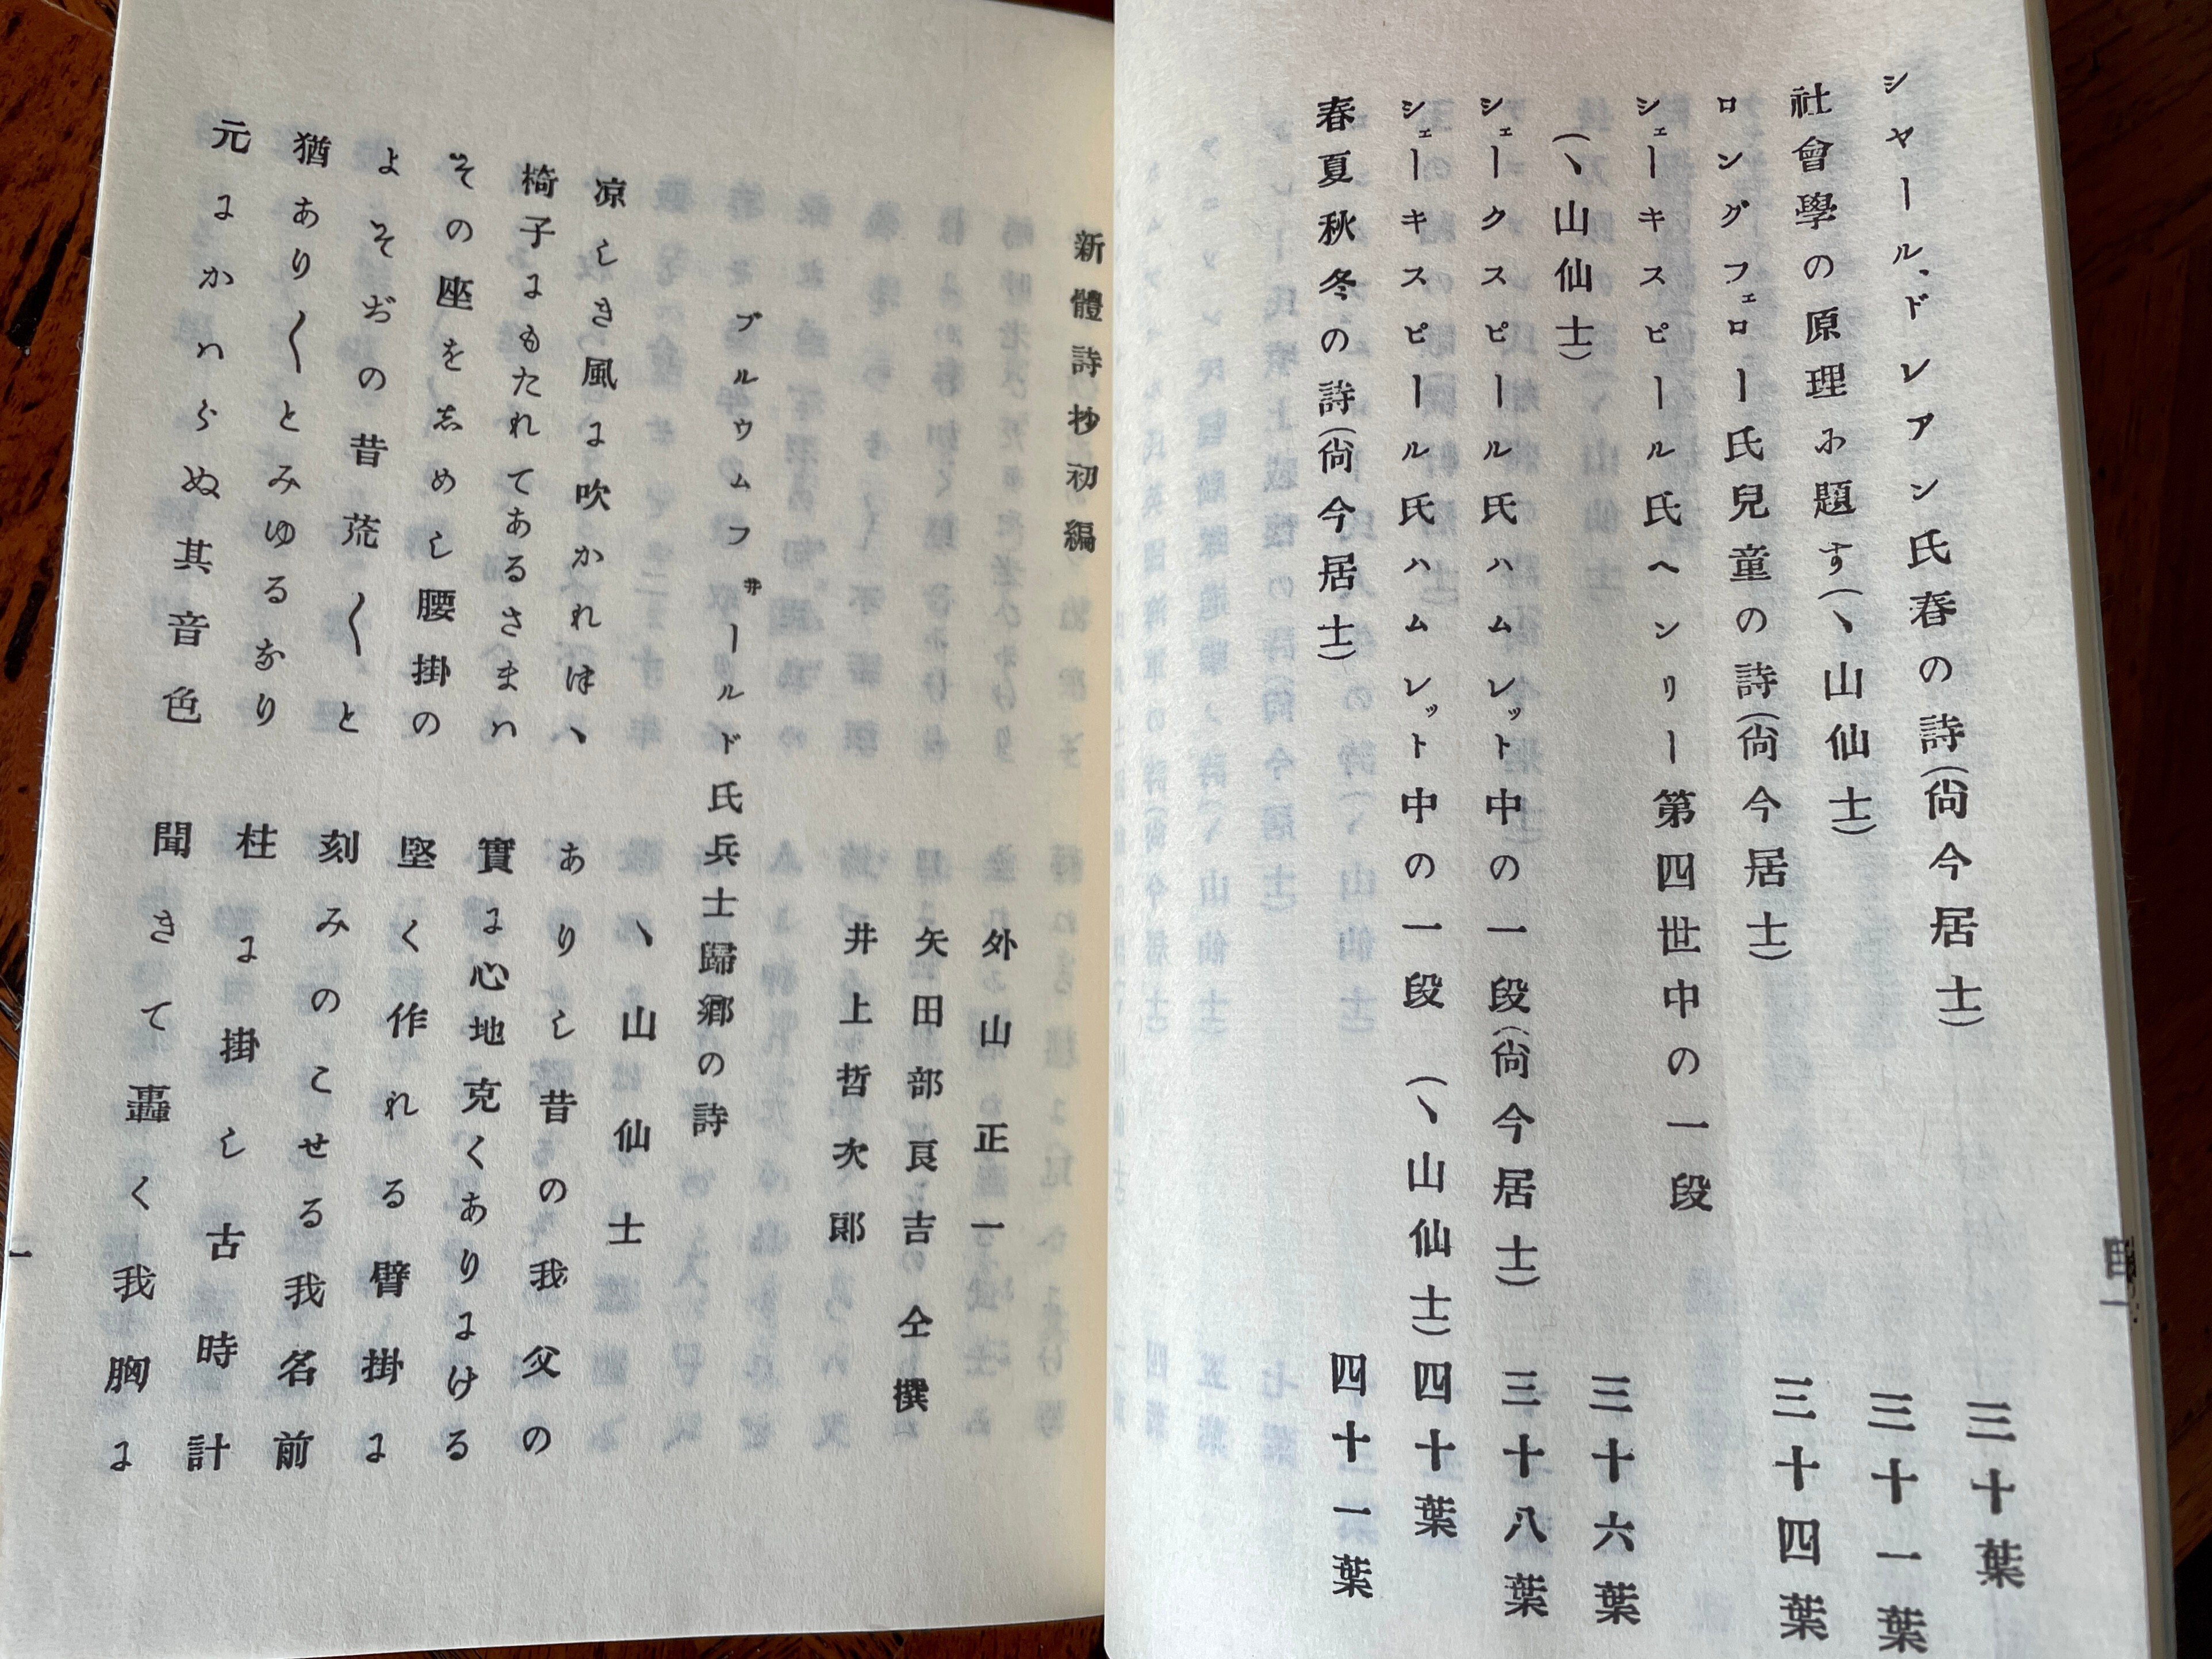 シャール、ドレアン氏春の詩(尙今居士) 三十葉
社會學の原理に題す(丶山仙士) 三十一葉
ロングフェロー氏兒童の詩(尙今居士) 三十四葉
シェーキスピール氏ヘンリー第四世中の一段
(丶山仙士) 三十六葉
シェークスピール氏ハムレット中の一段(尙今居士) 三十八葉
シェーキスピール氏ハムレット中の一段 (丶山仙士) 四十葉
春夏秋冬の詩(尙今居士) 四十一葉
新體詩抄初編
外山正一
矢田部良吉 仝撰
井上哲次郎
ブルウムフヰールド氏兵士歸郷の詩
丶山仙士
凉しき風に吹かれほヽ ありし昔の我父の
椅子にもたれてあるさまハ 實に心地克くありにける
その座を志めし腰掛の 堅く作れる臂掛に
よそぢの昔荒〱と 刻みのこせる我名前
猶あり〱とみゆるなり 柱に掛し古時計
元にかハらぬ其音色 聞きて轟く我胸に